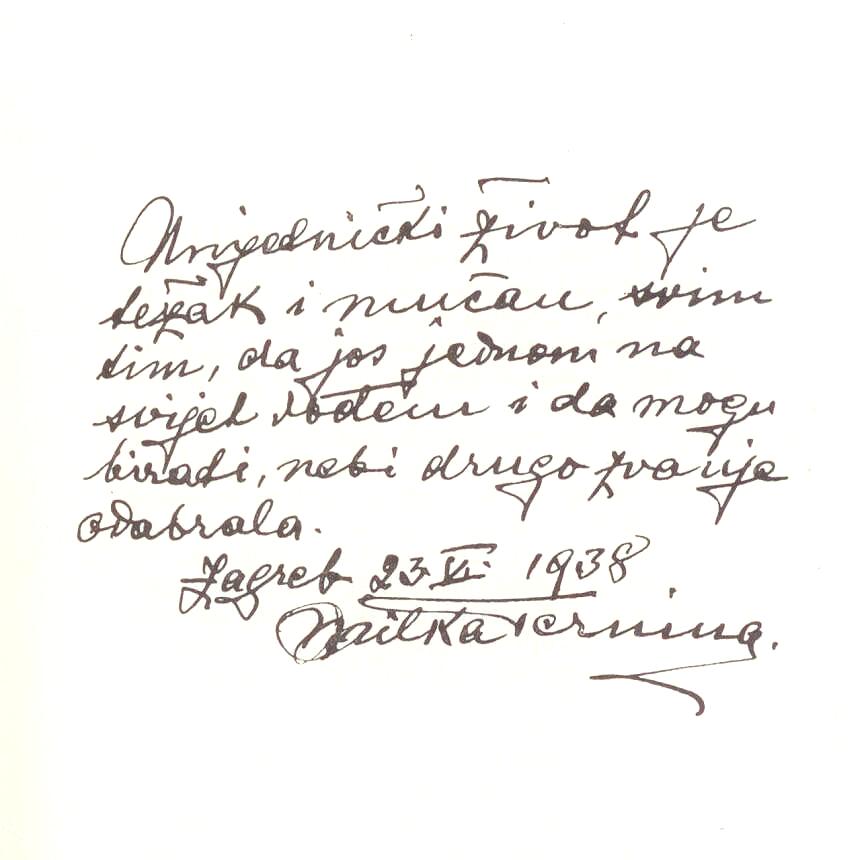 Umjetnički život je
težak i mučan, svim
tim, da jos jednom na
svijet dođem i da mogu
birati, nebi drugo zvanje
odabrala.
Zagreb 23 VI. 1938
Milka Ternina.